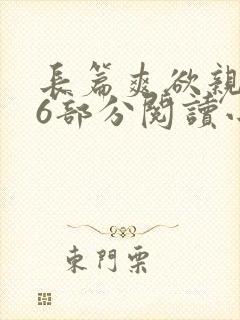 長篇爽欲親
6部分閱讀小
東門栗